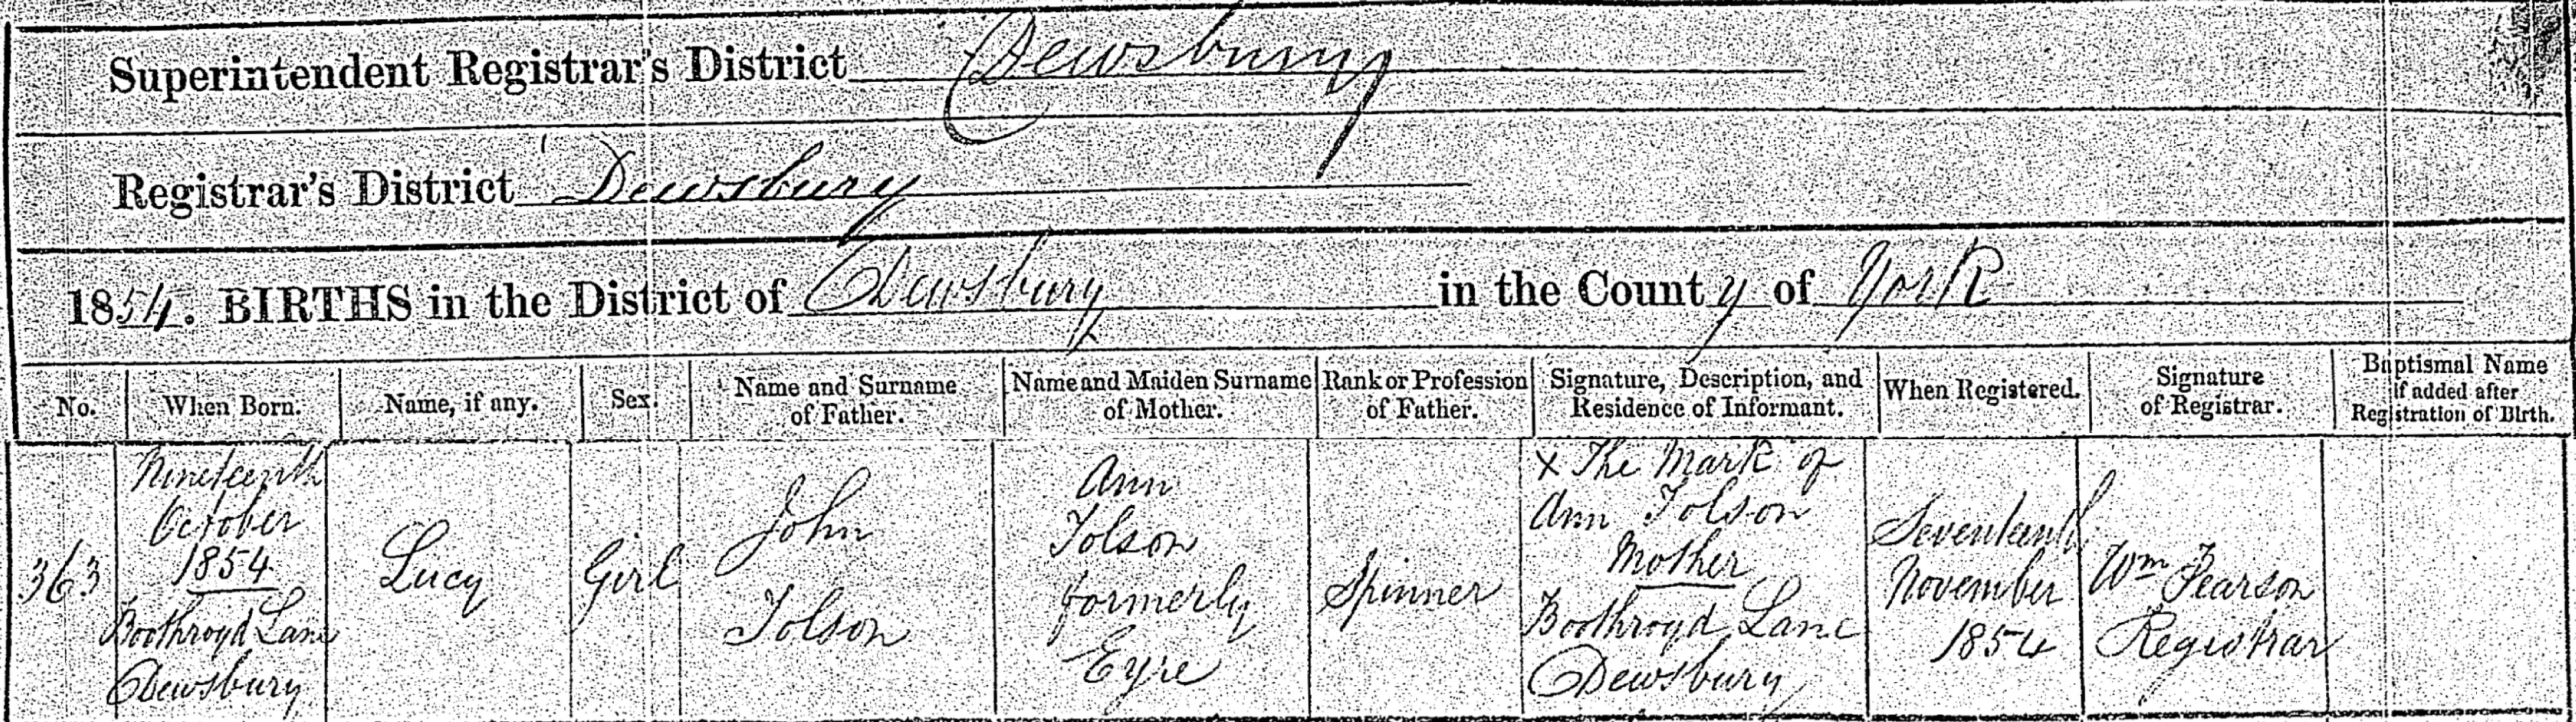 Superintendent Registrar's District Dewsbury
Registrar's District Dewsbury
1854. BIRTHS in the District of Dewsbury in the County of York
No.
When Born.
Name, if any.
Sex.
Name and Surname
of Father.
Name and Maiden Surname
of Mother.
Rank or Profession
of Father.
Signature, Description, and
Residence of Informant.
When Registered.
Signature
of Registrar.
Baptismal Name
if added after
Registration of Birth.
363
Nineteenth
October
1854
Boothroyd Lane
Dewsbury
Lucy
Girl
John
Tolson
Ann
Tolson
formerly
Eyre
Spinner
x The Mark of
Ann Tolson
Mother
Boothroyd Lane
Dewsbury
Seventeenth
November
1854
Wm Pearson
Registrar